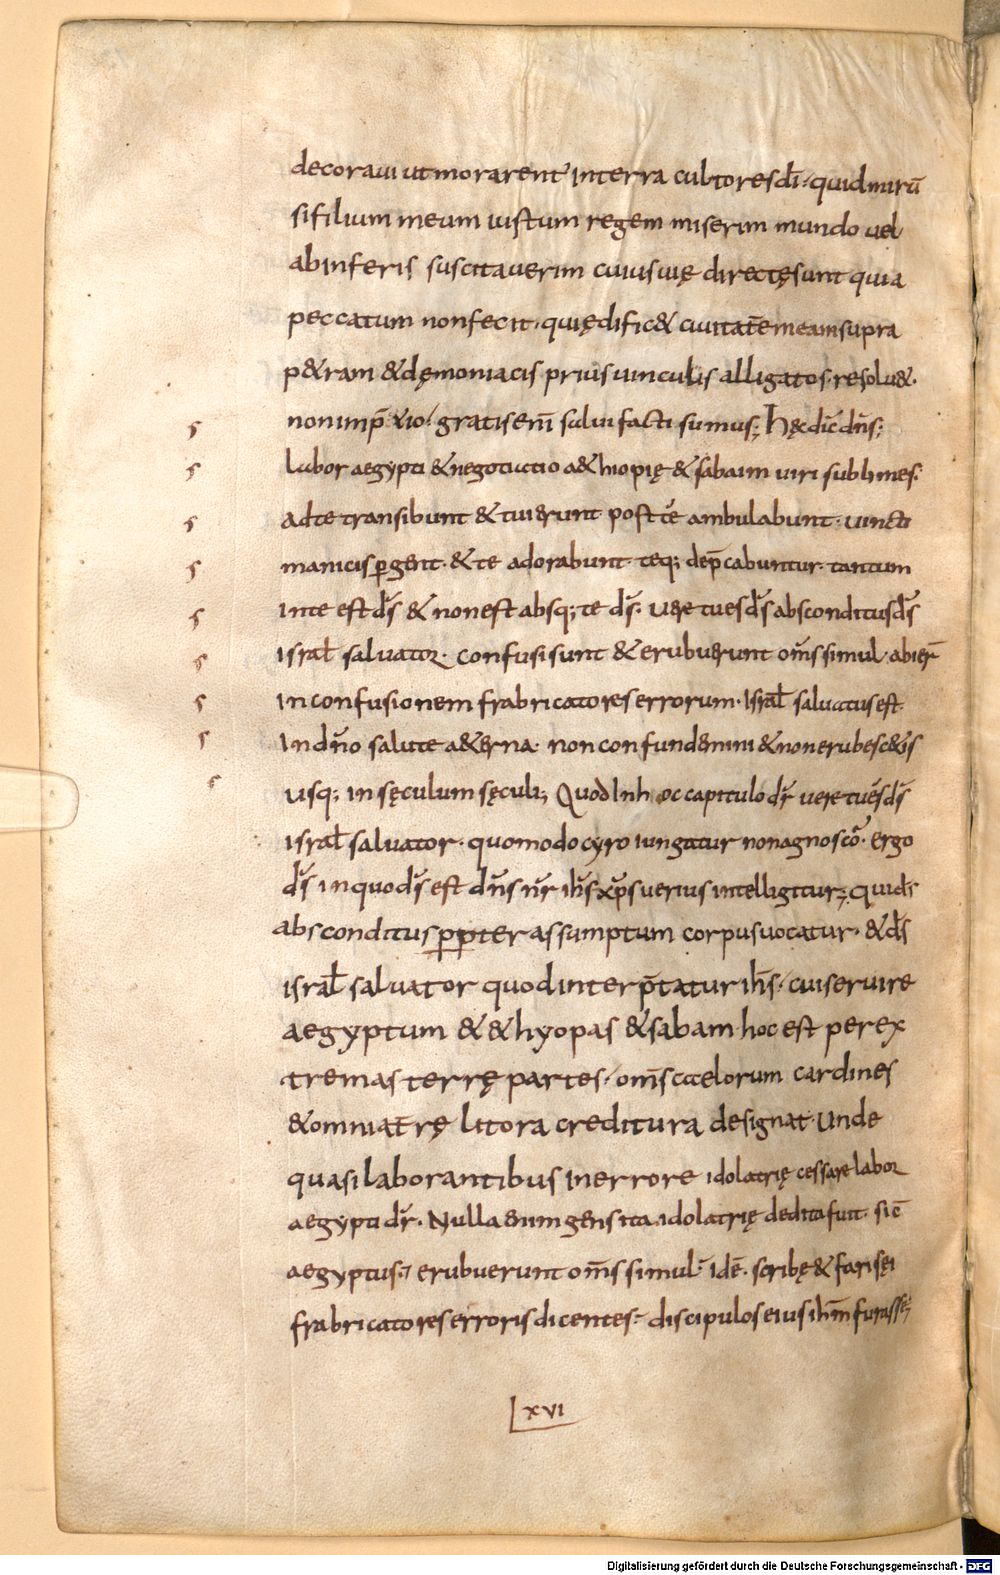 decoraui ut morarent̄ in terra cultores dī· quid mirū
si filium meum iustum regem miserim mundo uel
ab inferis suscitauerim cuius uię directę sunt quia
peccatum non fecit· qui ędific& ciuitatē meam supra
p&ram &dęmoniacis prius uinculis alligatos· resolu&·
non imp̄ &io· gratis enī salui facti sumus; hęc dīc dn̄s;
labor aegypti & negotiatio a&hiopię & sabaim uiri sublimes·
ad te transibunt & tui erunt post tē ambulabunt· uincti
manicis pergent· & te adorabunt· teq; dep̄cabuntur· tantum
in te est ds̄ & non est absq; te ds̄· uere tu es ds̄ absconditus ds̄
israł saluator· confusi sunt & erubuerunt om̄s simul· abier̄
in confusionem frabricatores errorum· israł saluatus est
in dn̄o salute a&erna· non confundemini & non erubesc&is
usq; in sęculum sęculi; Quod in h oc capitulo dr̄ uere tu es ds̄
israł saluator· quomodo cyro iungatur non agnoscō· ergo
ds̄ in quo ds̄ est dn̄s nr̄ ih̄s xp̄s uerius intelligitur; qui ds̄
absconditus propter assumptum corpus uocatur· & ds̄
israł saluator quod interp̄tatur ih̄s· cui seruire
aegyptum & &hyopas & sabam hoc est per ex
tremas terrę partes· om̄s caelorum cardines
& omnia terrę litora creditura designat· Unde
quasi laborantibus in errore idolatrię cessare labor
aegypti dr̄· Nulla enim gens ita idolatrię dedita fuit· sic̄
aegyptus; erubuerunt om̄s simul· idē· scribę & farisęi
frabricatores erroris dicentes· discipulos eius ih̄m furasse;
xvi
Digitalisierung gefördert durch die Deutsche Forschungsgemeinschaft - DFG